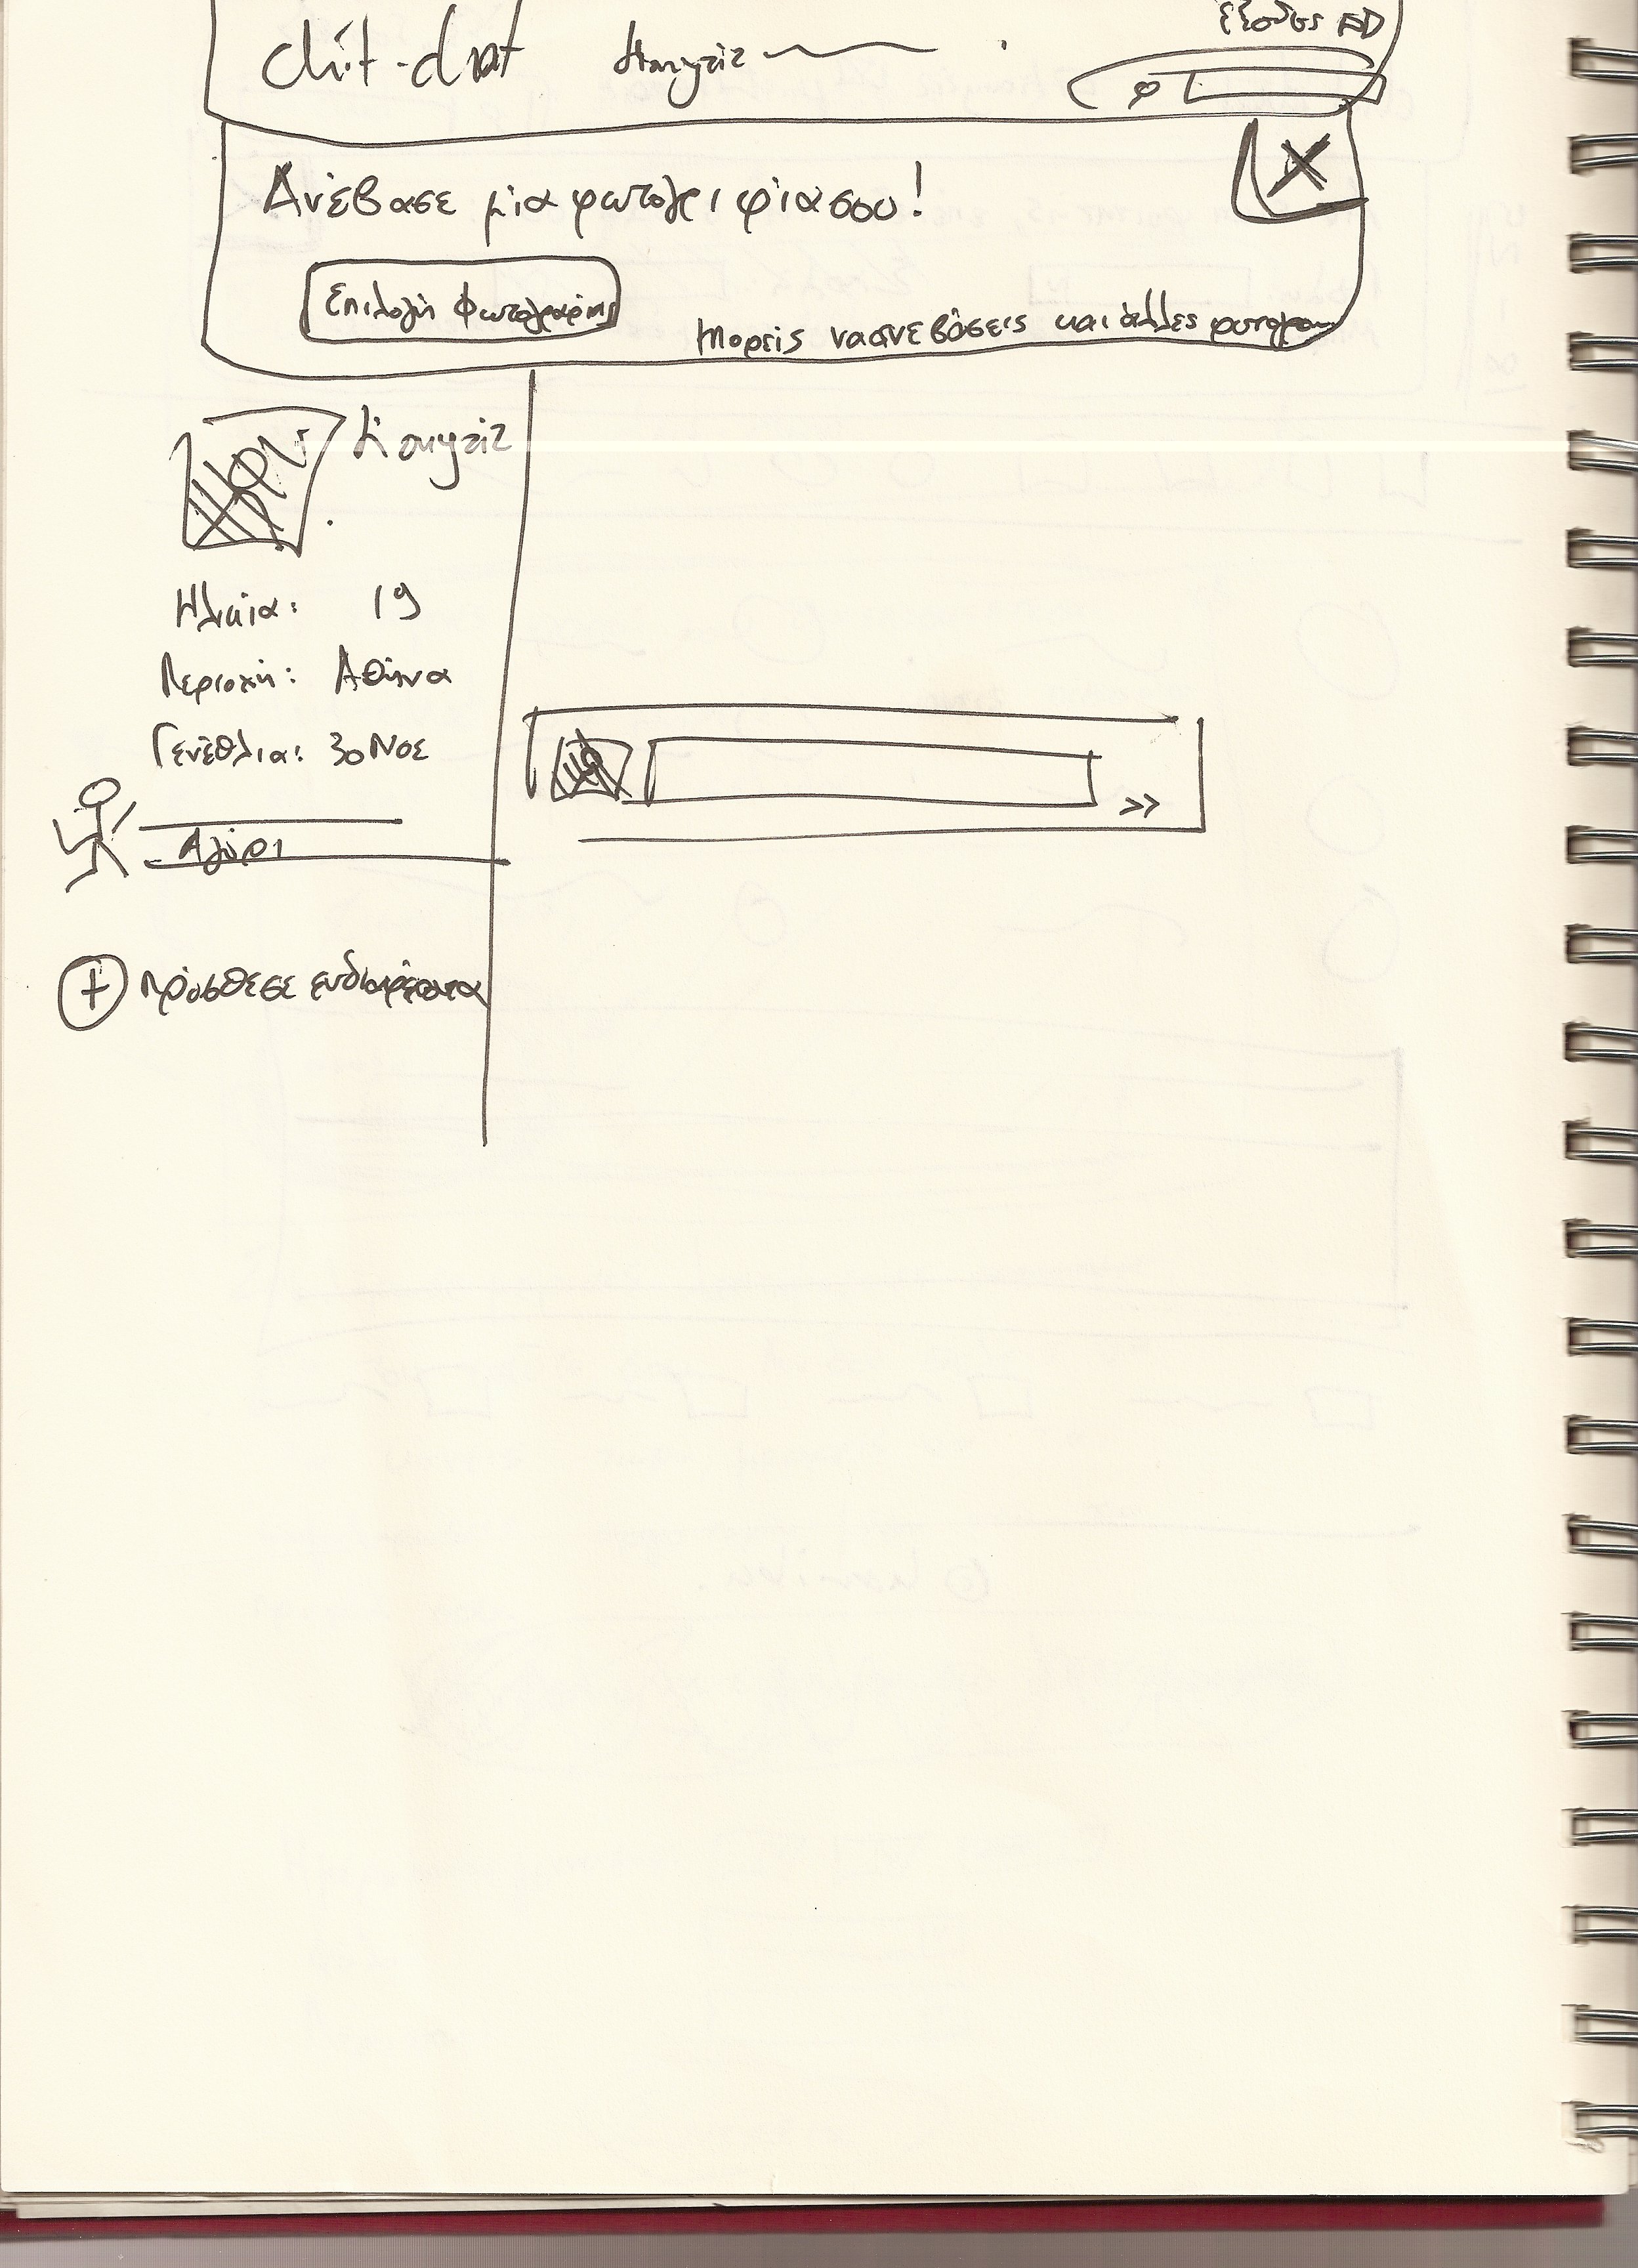 chit-chat
Έξοδος
Ανέβασε μία φωτογρ ι φία σου!
Επιλογή Φωτογραφίας
Μπορείς να ανεβάσεις και άλλες φωτογραφ
Ηλικία: 19
Περιοχή: Αθήνα
Γενέθλια: 30 Νοε
Αγόρι
+ Πρόσθεσε ενδιαφέροντα
>>